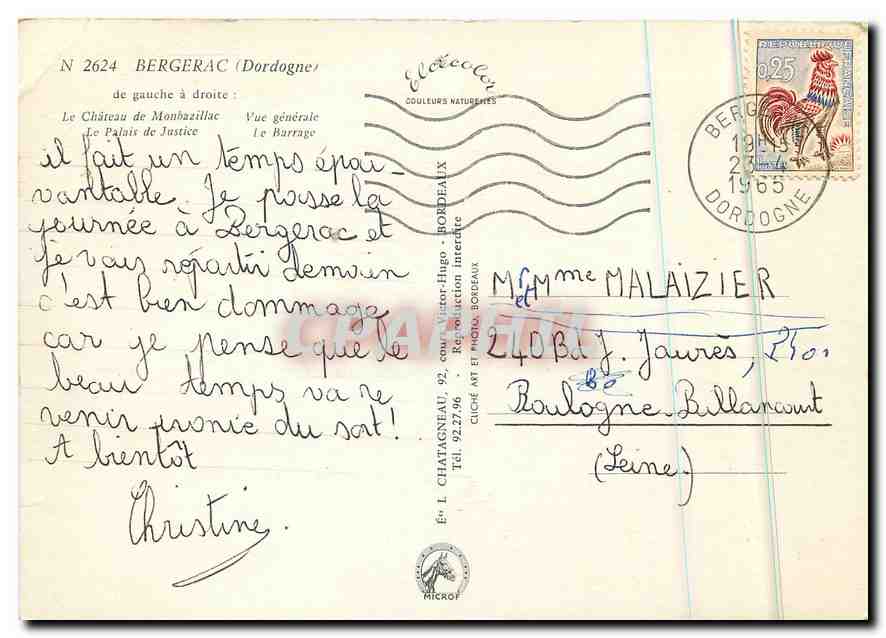 N 2624 BERGERAC (Dordogne)
de gauche à droite :
Le Château de Monbazillac Vue générale
Le Palais de Justice Le Barrage
il fait un temps épou
vantable. Je passe la
journée à Bergerac et
je vais répartir demain
c'est bien dommage
car je pense que le
beau temps va re
venir ironie du sort!
A bientôt
Christine.
Elcécolor
COULEURS NATURELLES
Éd. I. CHATAGNEAU, 92, cours Victor-Hugo - BORDEAUX
Tél. 92.27.96 - Reproduction interdite
CLICHÉ ART ET PHOTO, BORDEAUX
MICROF
REPUBLIQUE FRANÇAISE
0,25
POSTES
BERGERAC
19H15
23-4
1965
DORDOGNE
Mr et Mme MALAIZIER
240 Bd J. Jaurès,
Boulogne-Billancourt
(Seine)
CPAPHIL